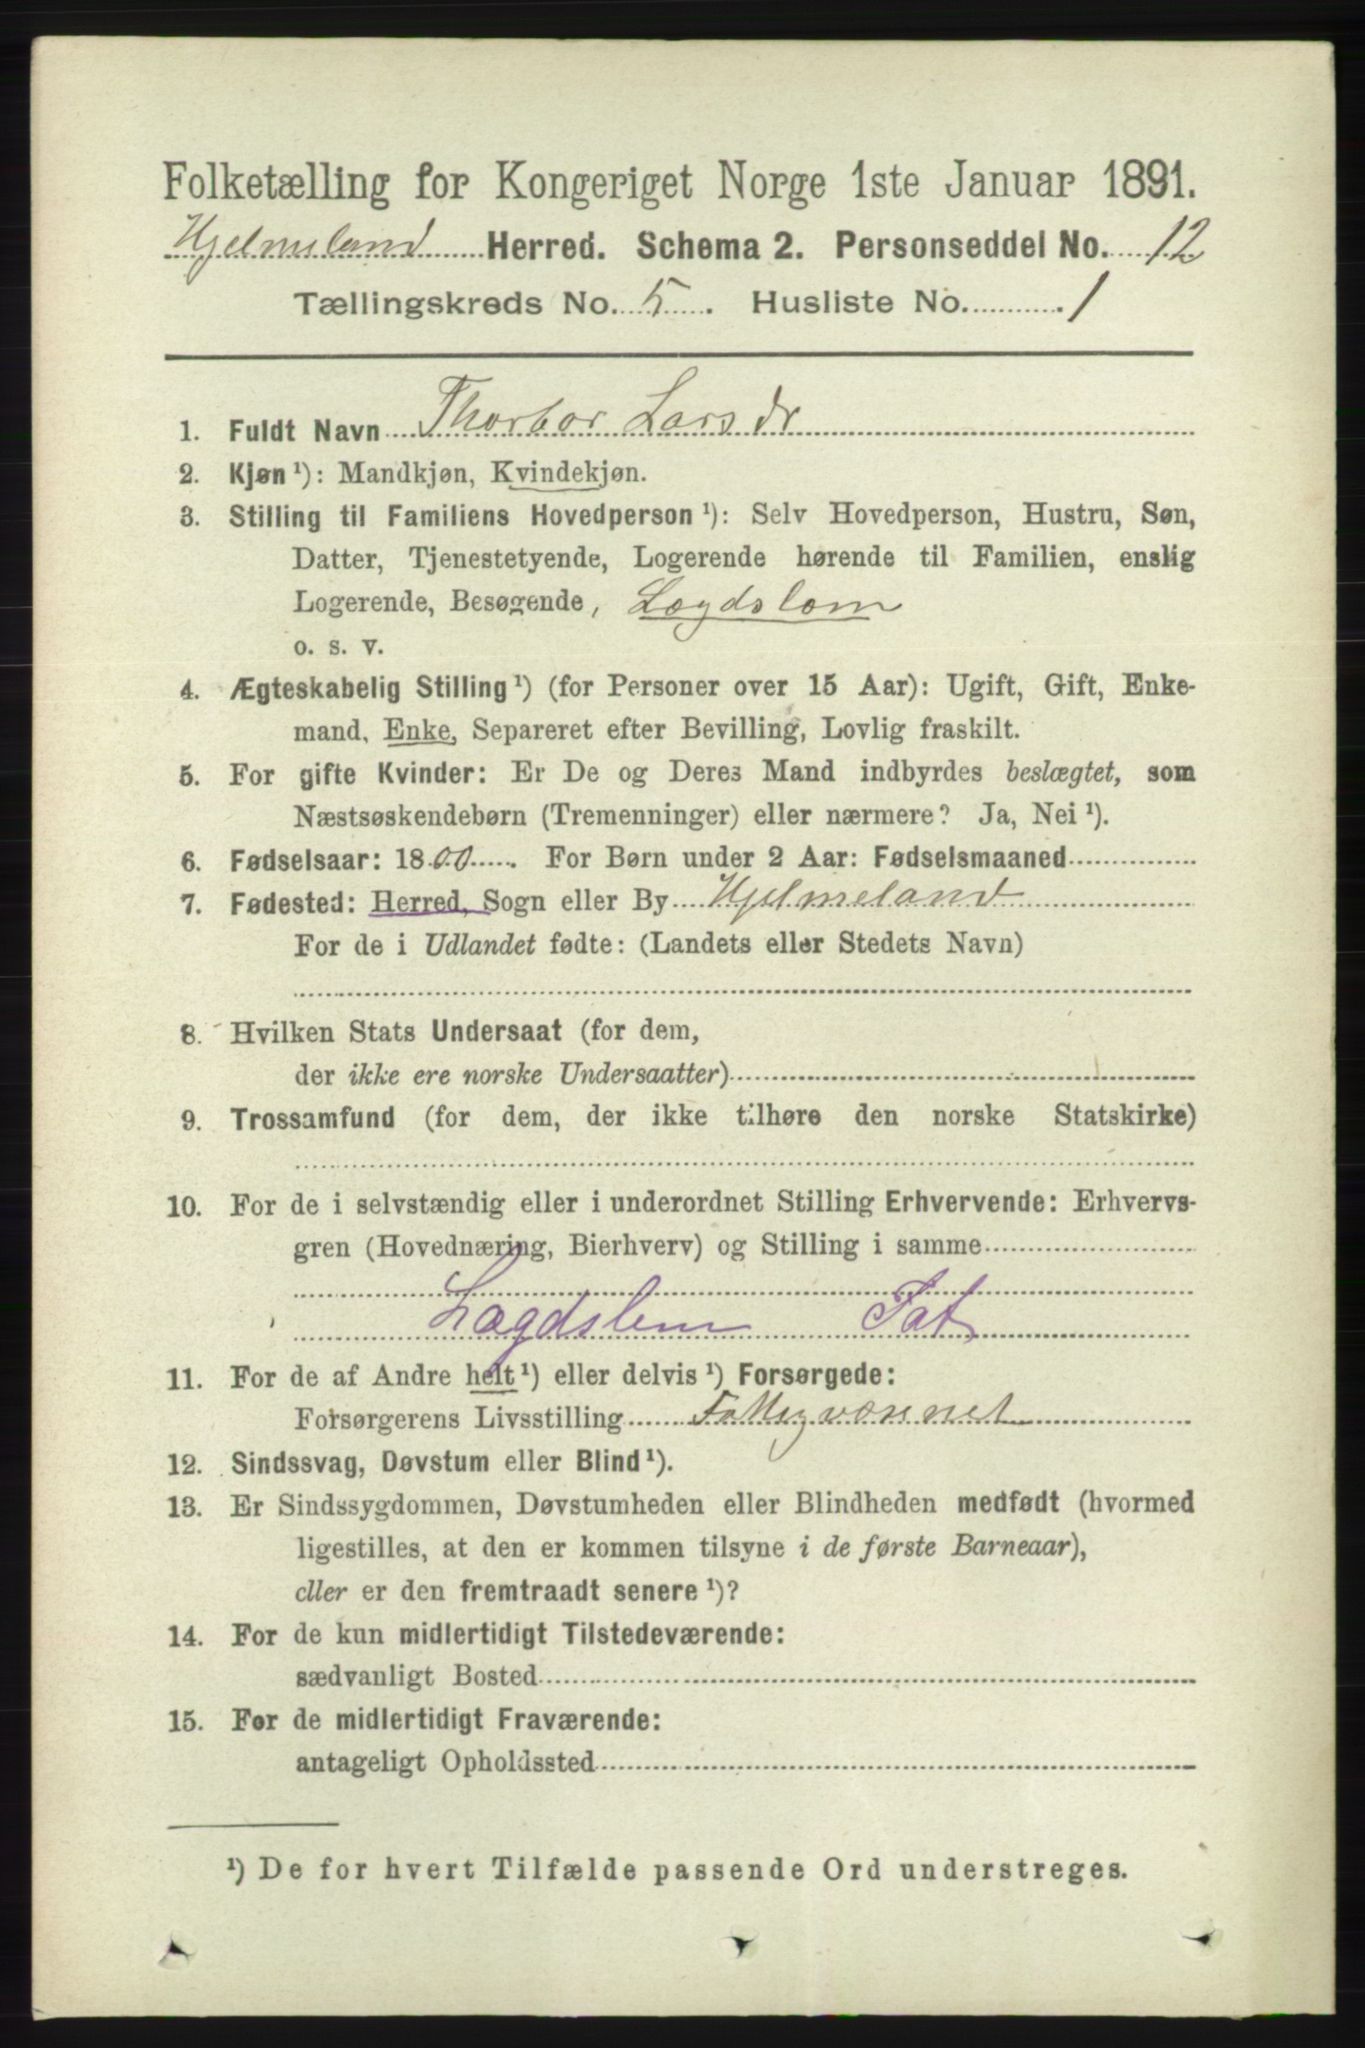 Folketælling for Kongeriget Norge 1ste Januar 1891.
Hjelmeland Herred. Schema 2. Personseddel No. 12
Tællingskreds No. 5. Husliste No. 1
1. Fuldt Navn Thorbor Larsdr
2. Kjøn ¹): Mandkjøn, Kvindekjøn.
3. Stilling til Familiens Hovedperson ¹): Selv Hovedperson, Hustru, Søn,
Datter, Tjenestetyende, Logerende hørende til Familien, enslig
Logerende, Besøgende, Lægdslem
o. s. v.
4. Ægteskabelig Stilling ¹) (for Personer over 15 Aar): Ugift, Gift, Enke-
mand, Enke, Separeret efter Bevilling, Lovlig fraskilt.
5. For gifte Kvinder: Er De og Deres Mand indbyrdes beslægtet, som
Næstsøskendebørn (Tremenninger) eller nærmere? Ja, Nei ¹).
6. Fødselsaar: 1800. For Børn under 2 Aar: Fødselsmaaned
7. Fødested: Herred, Sogn eller By Hjelmeland
For de i Udlandet fødte: (Landets eller Stedets Navn)
8. Hvilken Stats Undersaat (for dem,
der ikke ere norske Undersaatter)
9. Trossamfund (for dem, der ikke tilhøre den norske Statskirke)
10. For de i selvstændig eller i underordnet Stilling Erhvervende: Erhvervs-
gren (Hovednæring, Bierhverv) og Stilling i samme
Lægdslem Fat
11. For de af Andre helt ¹) eller delvis ¹) Forsørgede:
Forsørgerens Livsstilling Fattigvæsenet
12. Sindssvag, Døvstum eller Blind ¹).
13. Er Sindssygdommen, Døvstumheden eller Blindheden medfødt (hvormed
ligestilles, at den er kommen tilsyne i de første Barneaar),
eller er den fremtraadt senere ¹)?
14. For de kun midlertidigt Tilstedeværende:
sædvanligt Bosted
15. For de midlertidigt Fraværende:
antageligt Opholdssted
¹) De for hvert Tilfælde passende Ord understreges.